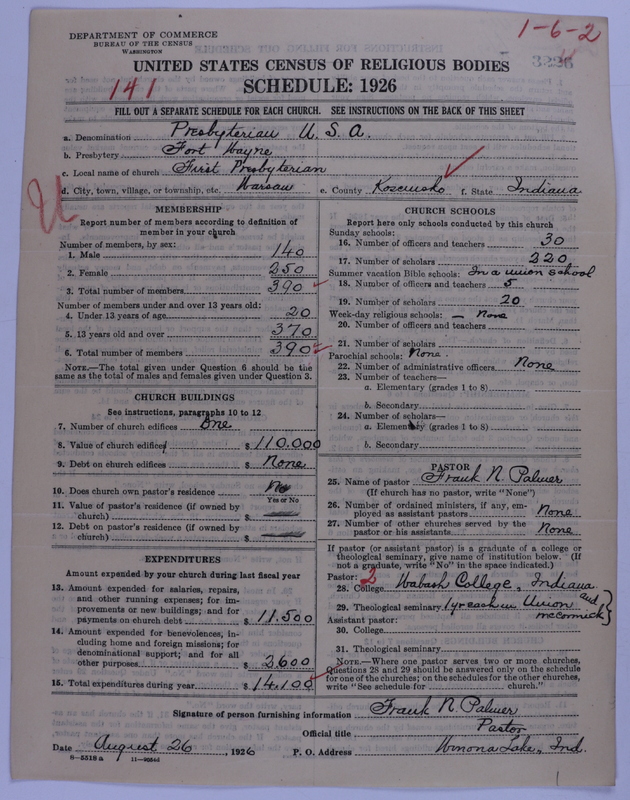 DEPARTMENT OF COMMERCE
BUREAU OF THE CENSUS
WASHINGTON
1-6-2
3226
UNITED STATES CENSUS OF RELIGIOUS BODIES
141
SCHEDULE: 1926
FILL OUT A SEPARATE SCHEDULE FOR EACH CHURCH. SEE INSTRUCTIONS ON THE BACK OF THIS SHEET
a. Denomination Presbyterian U. S. A.
b. Presbytery Fort Wayne
c. Local name of church First Presbyterian
d. City, town, village, or township, etc. Warsaw e. County Kosciusko f. State Indiana
MEMBERSHIP
Report number of members according to definition of member in your church
Number of members, by sex:
1. Male 140
2. Female 250
3. Total number of members 390
Number of members under and over 13 years old:
4. Under 13 years of age 20
5. 13 years old and over 370
6. Total number of members 390
NOTE.—The total given under Question 6 should be the
same as the total of males and females given under Question 3.
CHURCH BUILDINGS
See instructions, paragraphs 10 to 12
7. Number of church edifices One
8. Value of church edifices $ 110.000
9. Debt on church edifices $ None
10. Does church own pastor's residence No
Yes or No
11. Value of pastor's residence (if owned by
church) $
12. Debt on pastor's residence (if owned by
church) $
EXPENDITURES
Amount expended by your church during last fiscal year
13. Amount expended for salaries, repairs,
and other running expenses; for im-
provements or new buildings; and for
payments on church debt $ 11.500
14. Amount expended for benevolences, in-
cluding home and foreign missions; for
denominational support; and for all
other purposes $ 2600
15. Total expenditures during year $ 14.100
CHURCH SCHOOLS
Report here only schools conducted by this church
Sunday schools:
16. Number of officers and teachers 30
17. Number of scholars 220
Summer vacation Bible schools: In a union school
18. Number of officers and teachers 5
19. Number of scholars 20
Week-day religious schools: — None
20. Number of officers and teachers
21. Number of scholars
Parochial schools: None.
22. Number of administrative officers None
23. Number of teachers—
a. Elementary (grades 1 to 8)
b. Secondary
24. Number of scholars—
a. Elementary (grades 1 to 8)
b. Secondary
PASTOR
25. Name of pastor Frank N. Palmer
(If church has no pastor, write "None")
26. Number of ordained ministers, if any, em-
ployed as assistant pastors None
27. Number of other churches served by the
pastor or his assistants None
If pastor (or assistant pastor) is a graduate of a college or
theological seminary, give name of institution below. (If
not a graduate, write "No" in the space indicated.)
Pastor: 2
28. College Wabash College, Indiana
29. Theological seminary Union and
McCormick
Assistant pastor:
30. College
31. Theological seminary
NOTE.—Where one pastor serves two or more churches,
Questions 28 and 29 should be answered only on the schedule
for one of the churches; on the schedules for the other churches,
write "See schedule for church."
Signature of person furnishing information Frank N. Palmer
Official title Pastor
Date August 26, 1926 P. O. Address Winona Lake, Ind.
8-5518 a